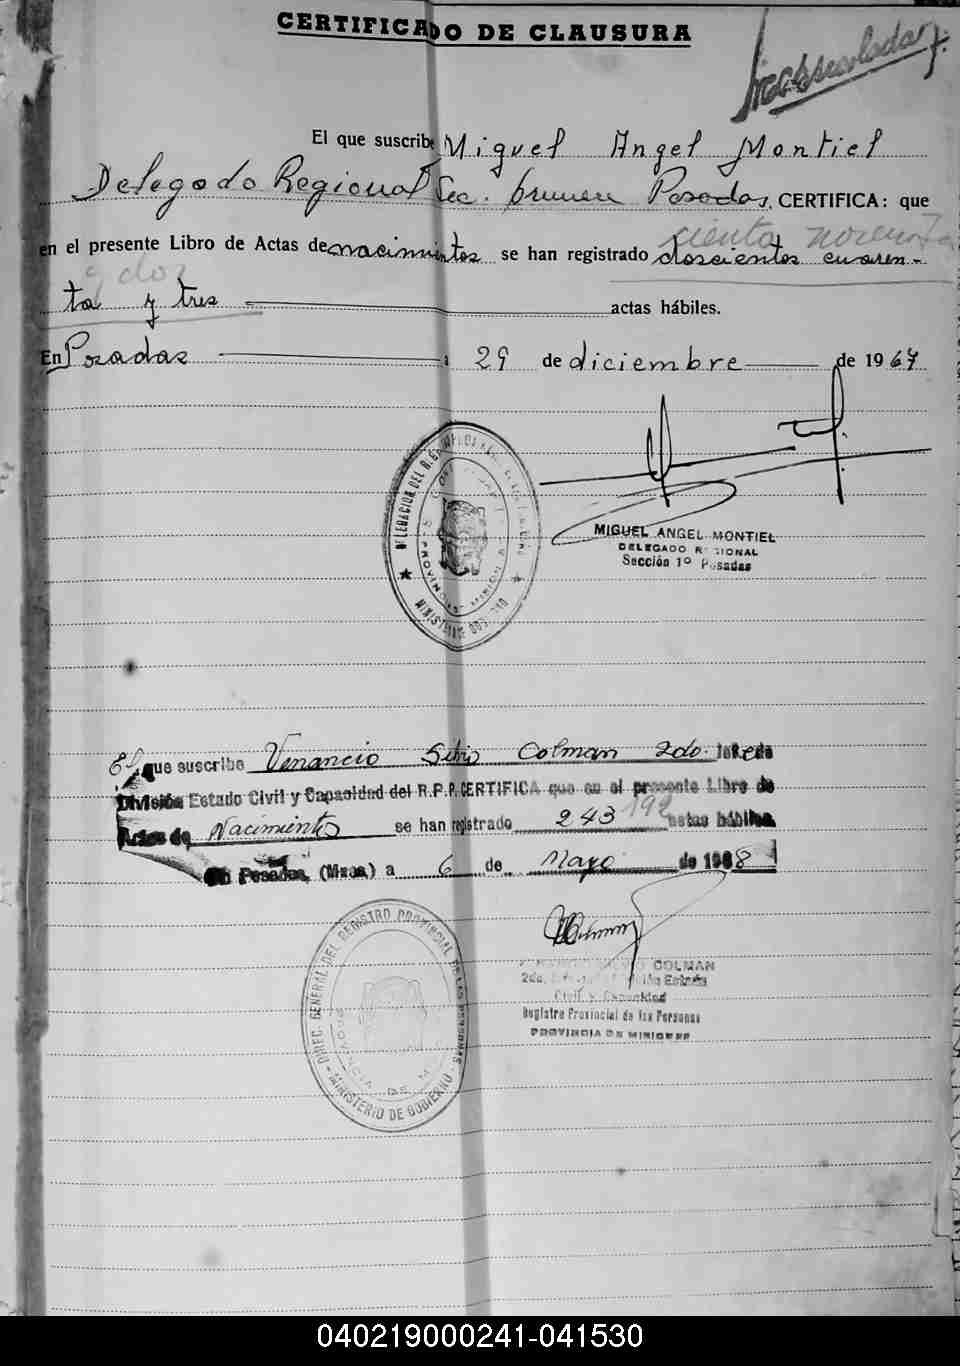 CERTIFICADO DE CLAUSURA
El que suscribe Miguel Angel Montiel
Delegado Regional Sec. primera Posadas, CERTIFICA: que
cienta noventa
en el presente Libro de Actas de nacimientos se han registrado doscientos cuaren-
y dos
ta y tres actas hábiles.
En Posadas a 29 de diciembre de 1967
MIGUEL ANGEL MONTIEL
DELEGADO REGIONAL
Sección 1º Posadas
El que suscribe Venancio Silvio Colman 2do. Jefe de
División Estado Civil y Capacidad del R.P.P. CERTIFICA que en el presente Libro de
Actas de Nacimientos se han registrado 243 192 actas hábiles
En Posadas, (Mnes.) a 6 de Mayo de 1968
DIREC. GENERAL DEL REGISTRO PROVINCIAL DE LAS PERSONAS
PROVINCIA DE
MINISTERIO DE GOBIERNO
SILVIO COLMAN
2do. División Estado
Civil y Capacidad
Registro Provincial de las Personas
PROVINCIA DE MISIONES
040219000241-041530